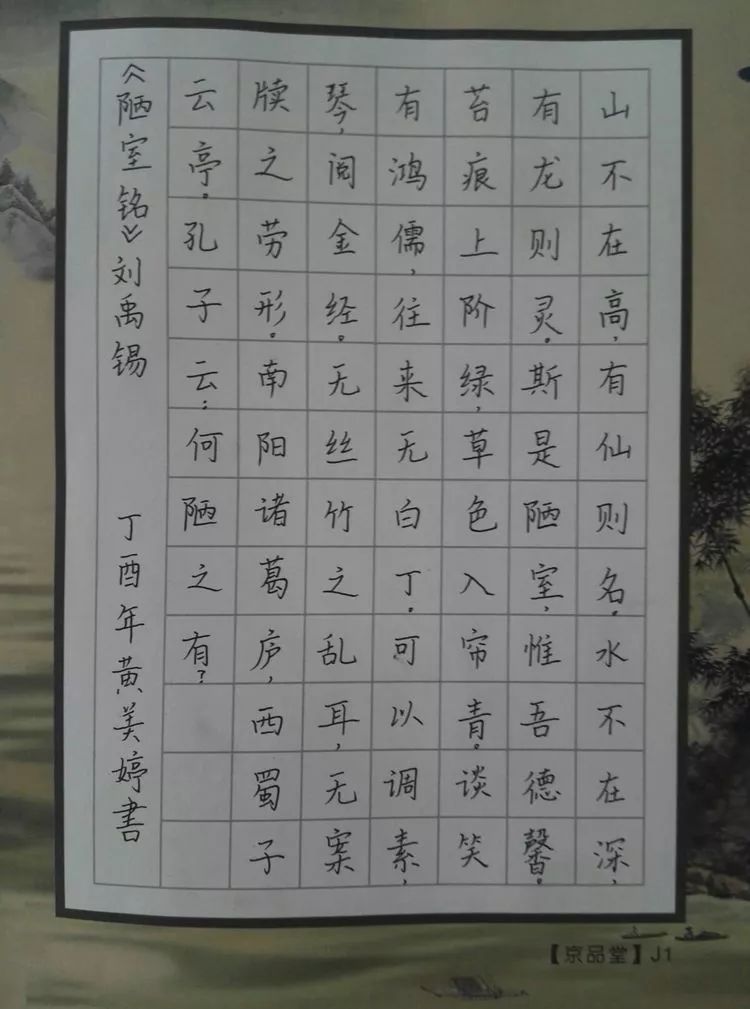 山不在高，有仙则名。水不在深，
有龙则灵。斯是陋室，惟吾德馨。
苔痕上阶绿，草色入帘青。谈笑
有鸿儒，往来无白丁。可以调素，
琴，阅金经。无丝竹之乱耳，无案
牍之劳形。南阳诸葛庐，西蜀子
云亭。孔子云：何陋之有？
《陋室铭》刘禹锡 丁酉年黄美婷書
【京品堂】J1